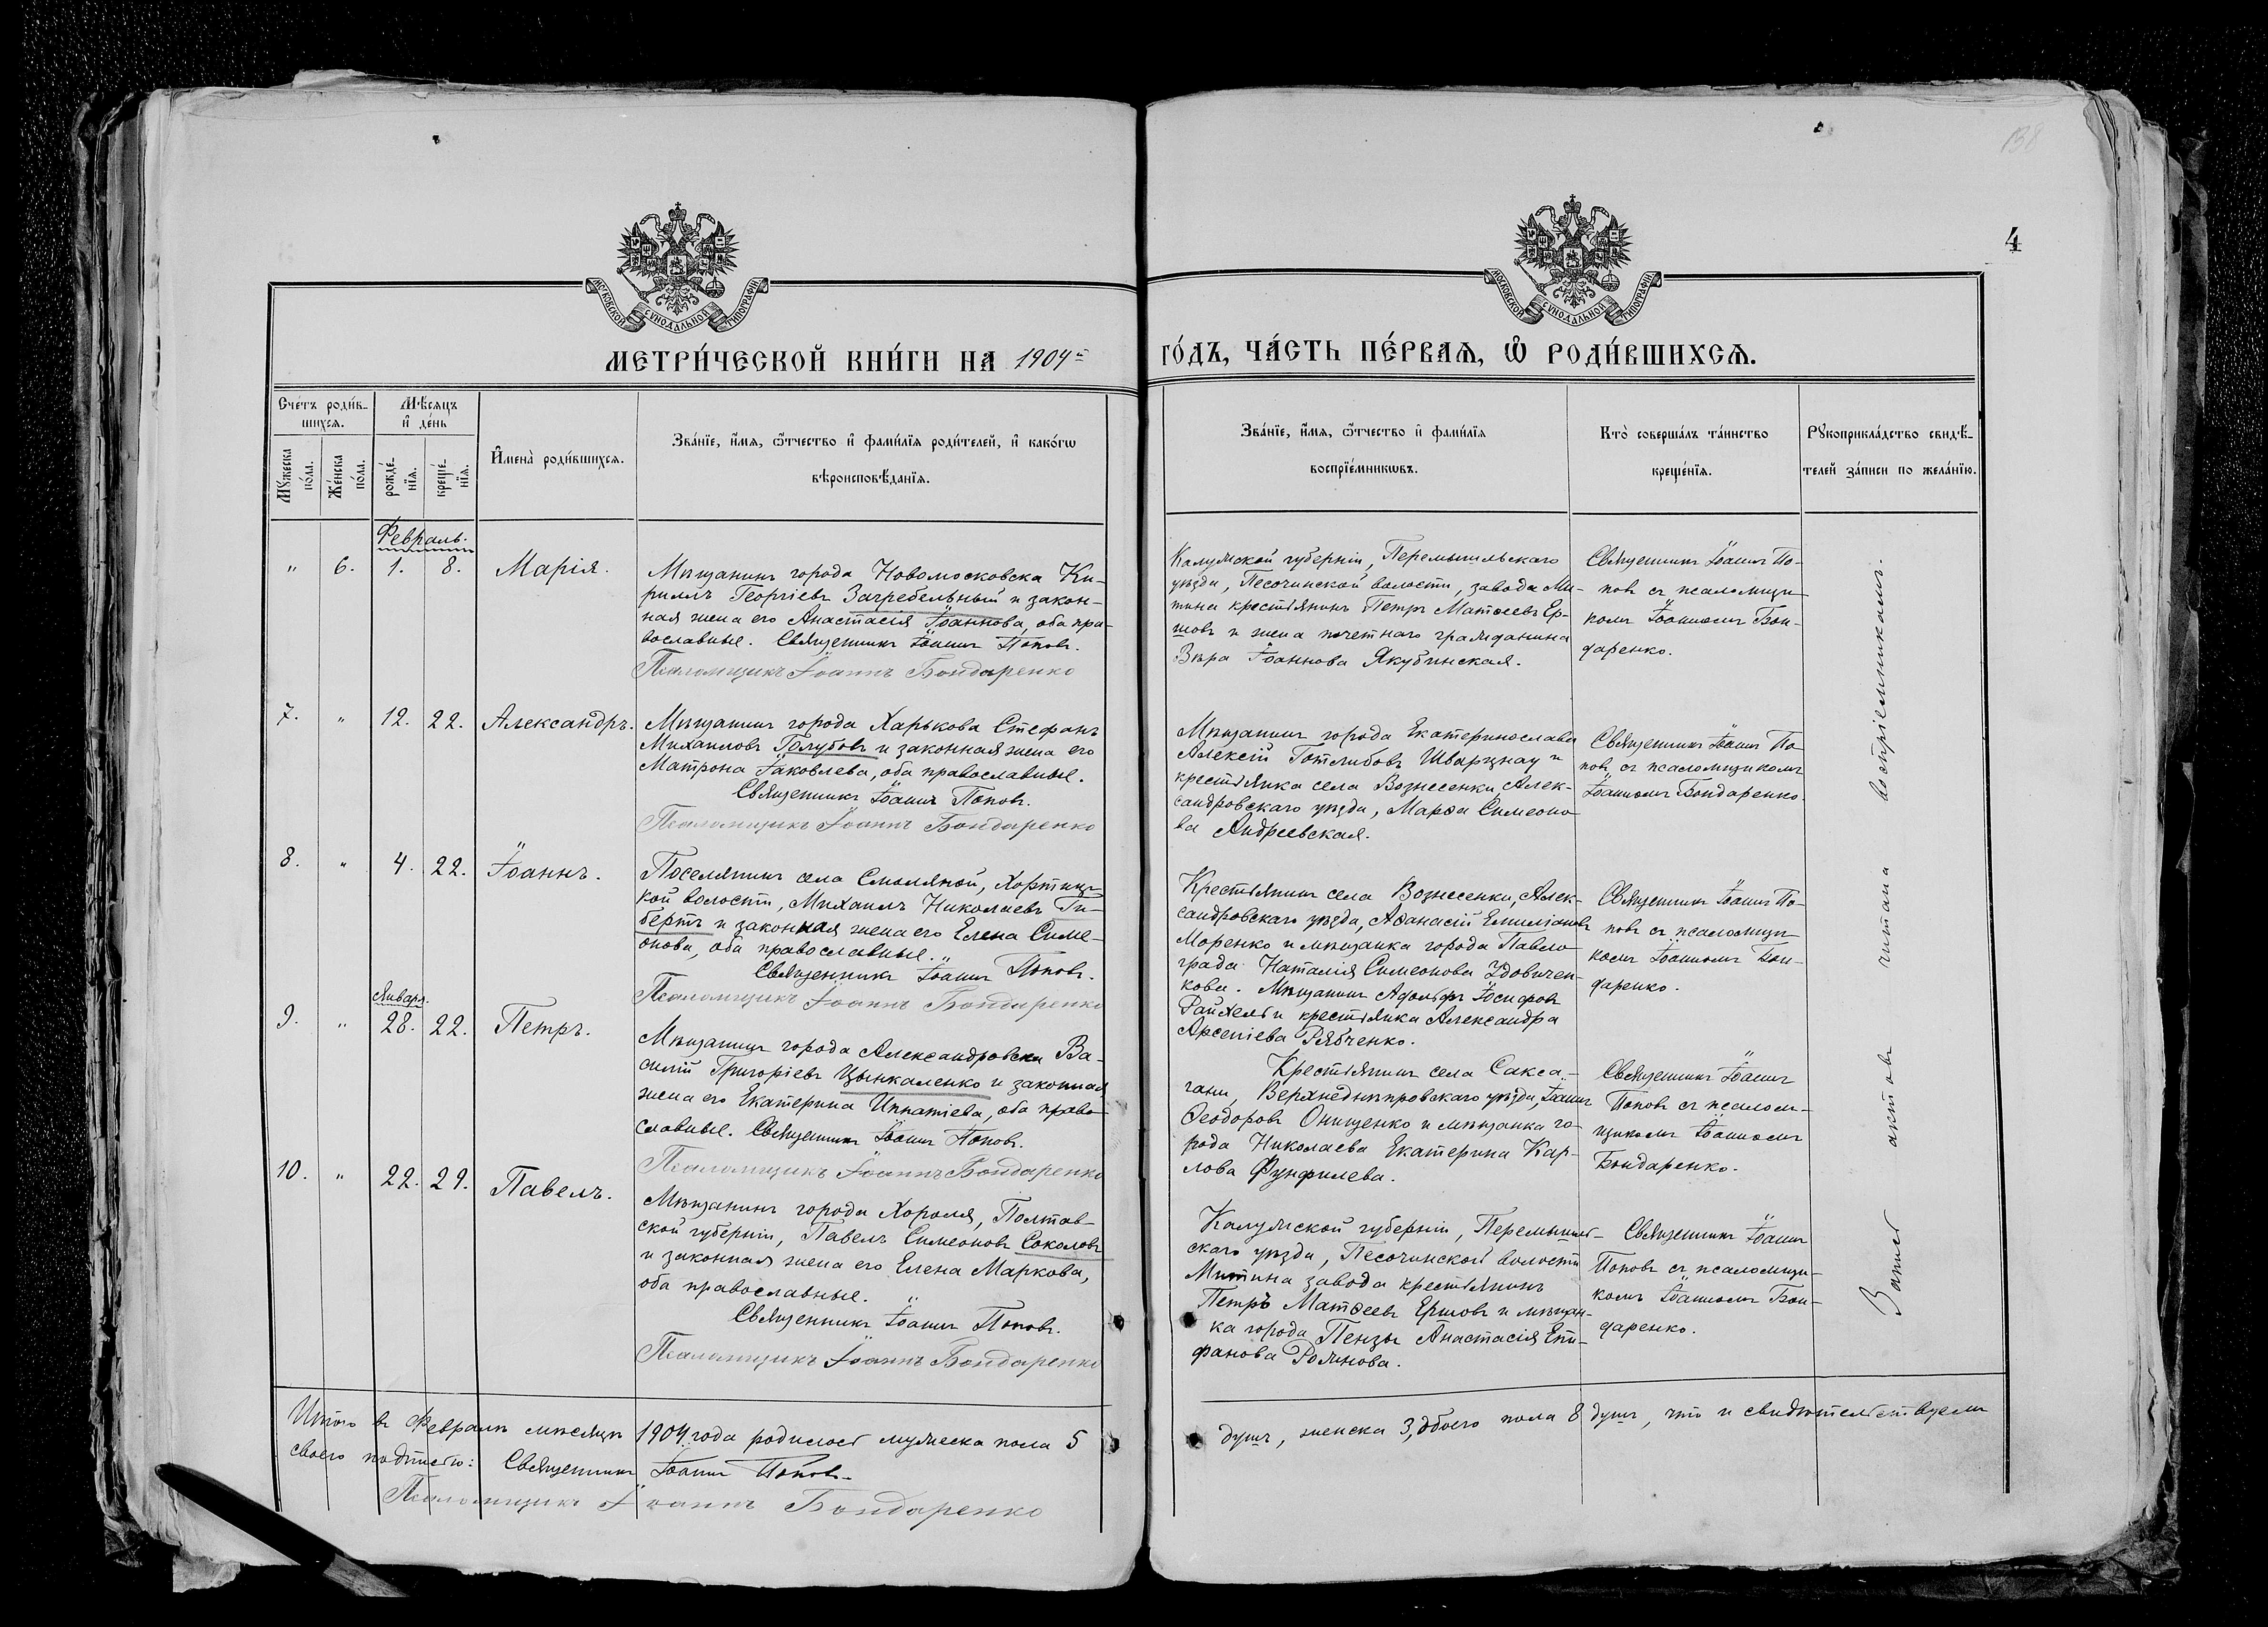 138
4
МОСКОВСКОЙ СѴНОДАЛЬНОЙ ТИПОГРАФІИ
МОСКОВСКОЙ СѴНОДАЛЬНОЙ ТИПОГРАФІИ
МЕТРИ́ЧЕСКОЙ КНИ́ГИ НА 1904й
ГО́ДЪ, ЧА́СТЬ ПЕ́РВАѦ, Ѽ РОДИ́ВШИХСѦ.
Сче́тъ роди́в-
шихсѧ.
Мꙋ́жеска
по́ла.
Же́нска
по́ла.
Мѣ́сѧцъ
и҆ де́нь
рожде́-
нїѧ.
креще́-
нїѧ.
И҆мена̀ роди́вшихсѧ.
Зва́нїе, и҆́мѧ, ѻ҆́тчество и҆ фами́лїѧ роди́телей, и҆ како́гѡ
вѣроисповѣ́данїѧ.
Зва́нїе, и҆́мѧ, ѻ҆́тчество и҆ фами́лїѧ
воспрїе́мникѡвъ.
Кто̀ соверша́лъ та́инство
креще́нїѧ.
Рꙋкоприкла́дство свидѣ́-
телей за́писи по жела́нїю.
Февраль.
" 6. 1. 8. Марія.
Мѣщанинъ города Новомосковска Ки-
риллъ Георгіевъ Загребельный и закон-
ная жена его Анастасія Іоаннова, оба пра-
вославные. Священникъ Іоаннъ Поповъ.
Псаломщикъ Іоаннъ Бондаренко
Калужской губерніи, Перемышльскаго
уѣзда, Песочинской волости, завода Ми-
тина крестьянинъ Петръ Матѳеевъ Ер-
шовъ и жена почетнаго гражданина
Вѣра Іоаннова Якубинская.
Священникъ Іоаннъ По-
повъ съ псаломщи-
комъ Іоанномъ Бон-
даренко.
7. " 12. 22. Александръ.
Мѣщанинъ города Харькова Стефанъ
Михаиловъ Голубовъ и законная жена его
Матрона Іаковлева, оба православные.
Священникъ Іоаннъ Поповъ.
Псаломщикъ Іоаннъ Бондаренко
Мѣщанинъ города Екатеринослава
Алексій Готлибовъ Шварцнау и
крестьянка села Вознесенки, Алек-
сандровскаго уѣзда, Марѳа Симеоно-
ва Андреевская.
Священникъ Іоаннъ По
повъ съ псаломщикомъ
Іоанномъ Бондаренко.
8. " 4. 22. Іоаннъ.
Поселянинъ села Смоляной, Хортиц-
кой волости, Михаилъ Николаевъ Ги-
бертъ и законная жена его Елена Симе-
онова, оба православные.
Священникъ Іоаннъ Поповъ.
Псаломщикъ Іоаннъ Бондаренко
Крестьянинъ села Вознесенки, Алек-
сандровскаго уѣзда, Аѳанасій Емиліановъ
Моренко и мѣщанка города Павло-
града Наталія Симеонова Удовичен-
кова. Мѣщанинъ Адольфъ Іосифовъ
Райхель и крестьянка Александра
Арсеніева Рябченко.
Священникъ Іоаннъ По-
повъ съ псаломщи-
комъ Іоанномъ Бон-
даренко.
Январь.
9. " 28. 22. Петръ.
Мѣщанинъ города Александровска Ва-
силій Григоріевъ Цынкаленко и законная
жена его Екатерина Игнатіева, оба право-
славные. Священникъ Іоаннъ Поповъ.
Псаломщикъ Іоаннъ Бондаренко
Крестьянинъ села Сакса-
гани, Верхнеднѣпровскаго уѣзда, Іоаннъ
Ѳеодоровъ Онищенко и мѣщанка го-
рода Николаева Екатерина Кар-
лова Фунфилева.
Священникъ Іоаннъ
Поповъ съ псалом-
щикомъ Іоанномъ
Бондаренко.
10. " 22. 29. Павелъ.
Мѣщанинъ города Хороля, Полтав-
ской губерніи, Павелъ Симеоновъ Соколовъ
и законная жена его Елена Маркова,
оба православные.
Священникъ Іоаннъ Поповъ.
Псаломщикъ Іоаннъ Бондаренко
Калужской губерніи, Перемышль-
скаго уѣзда, Песочинской волости
Митина завода крестьянинъ
Петръ Матѳеевъ Ершовъ и мѣщан-
ка города Пензы Анастасія Епи-
фанова Рожнова.
Священникъ Іоаннъ
Поповъ съ псаломщи-
комъ Іоанномъ Бон-
даренко.
Запись актовъ читана воспріемникамъ.
Итого въ Февралѣ мѣсяцѣ 1904 года родилось мужеска пола 5
душъ, женска 3, обоего пола 8 душъ, что и свидѣтельствуемъ
своею подписью: Священникъ Іоаннъ Поповъ.
Псаломщикъ Іоаннъ Бондаренко